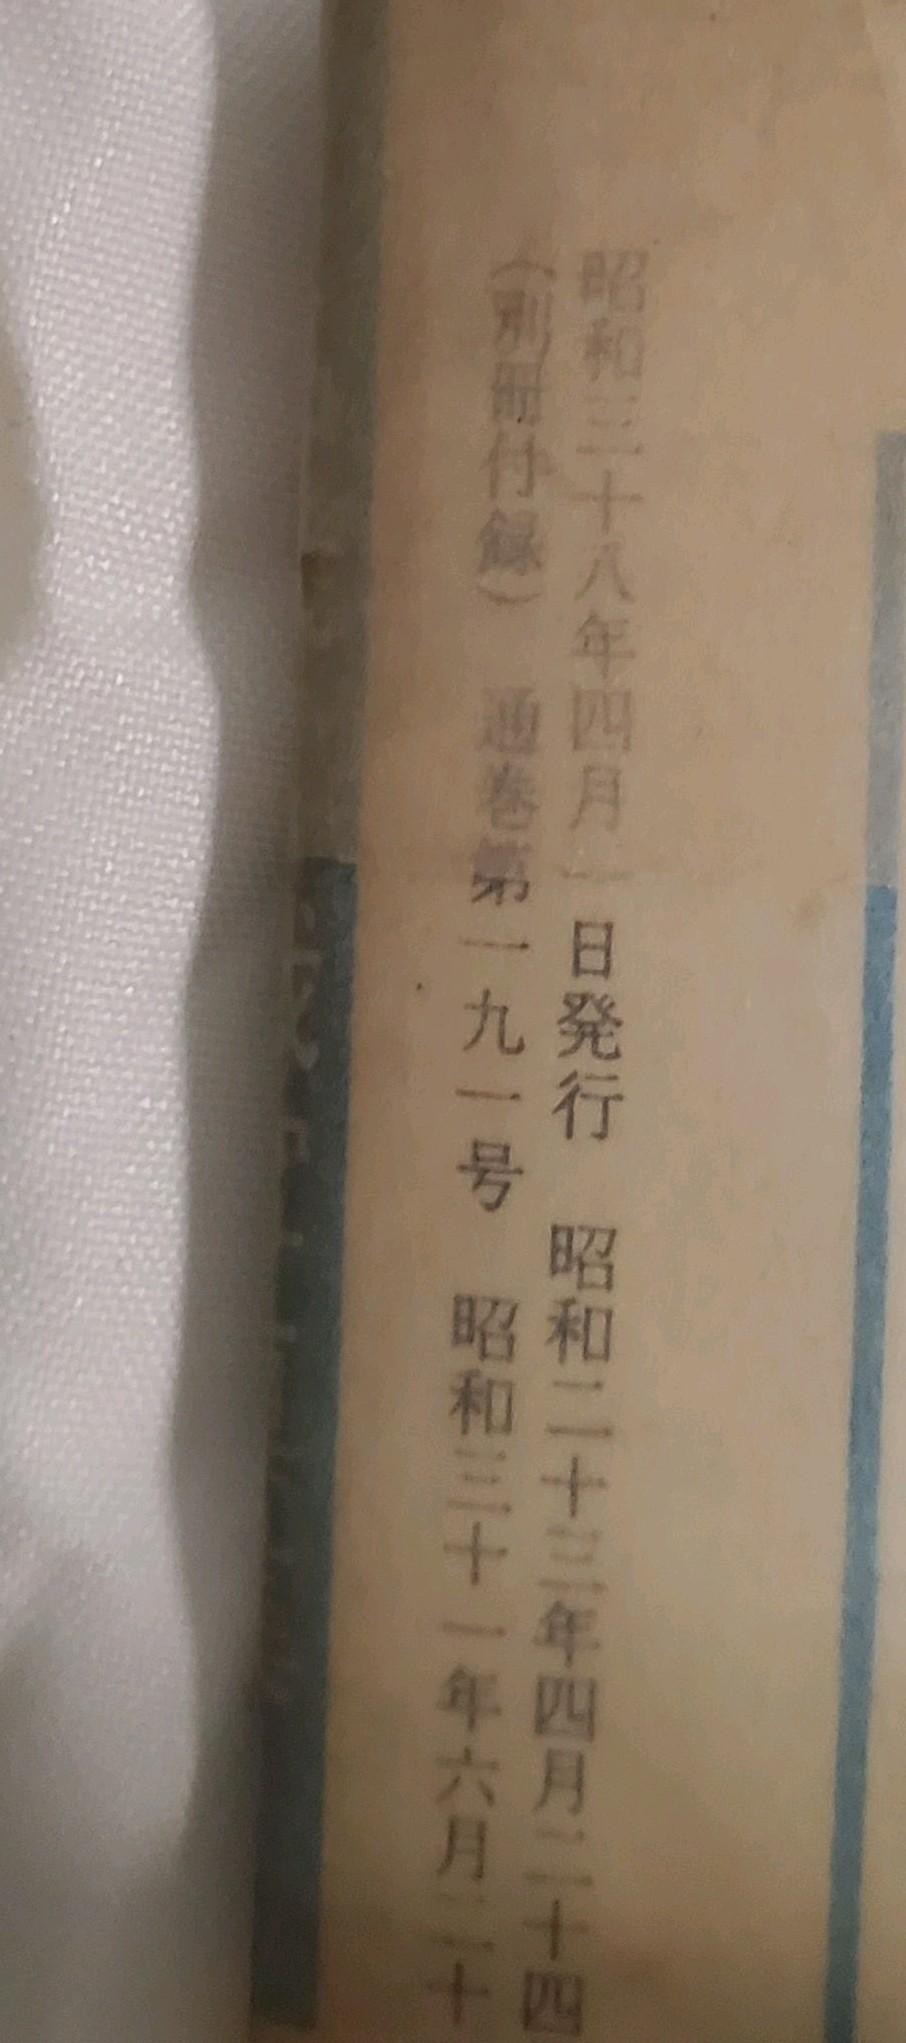 昭和三十八年四月一日発行　昭和二十三年四月二十四
（別冊付録）　通巻第一九一号　昭和三十一年六月二十